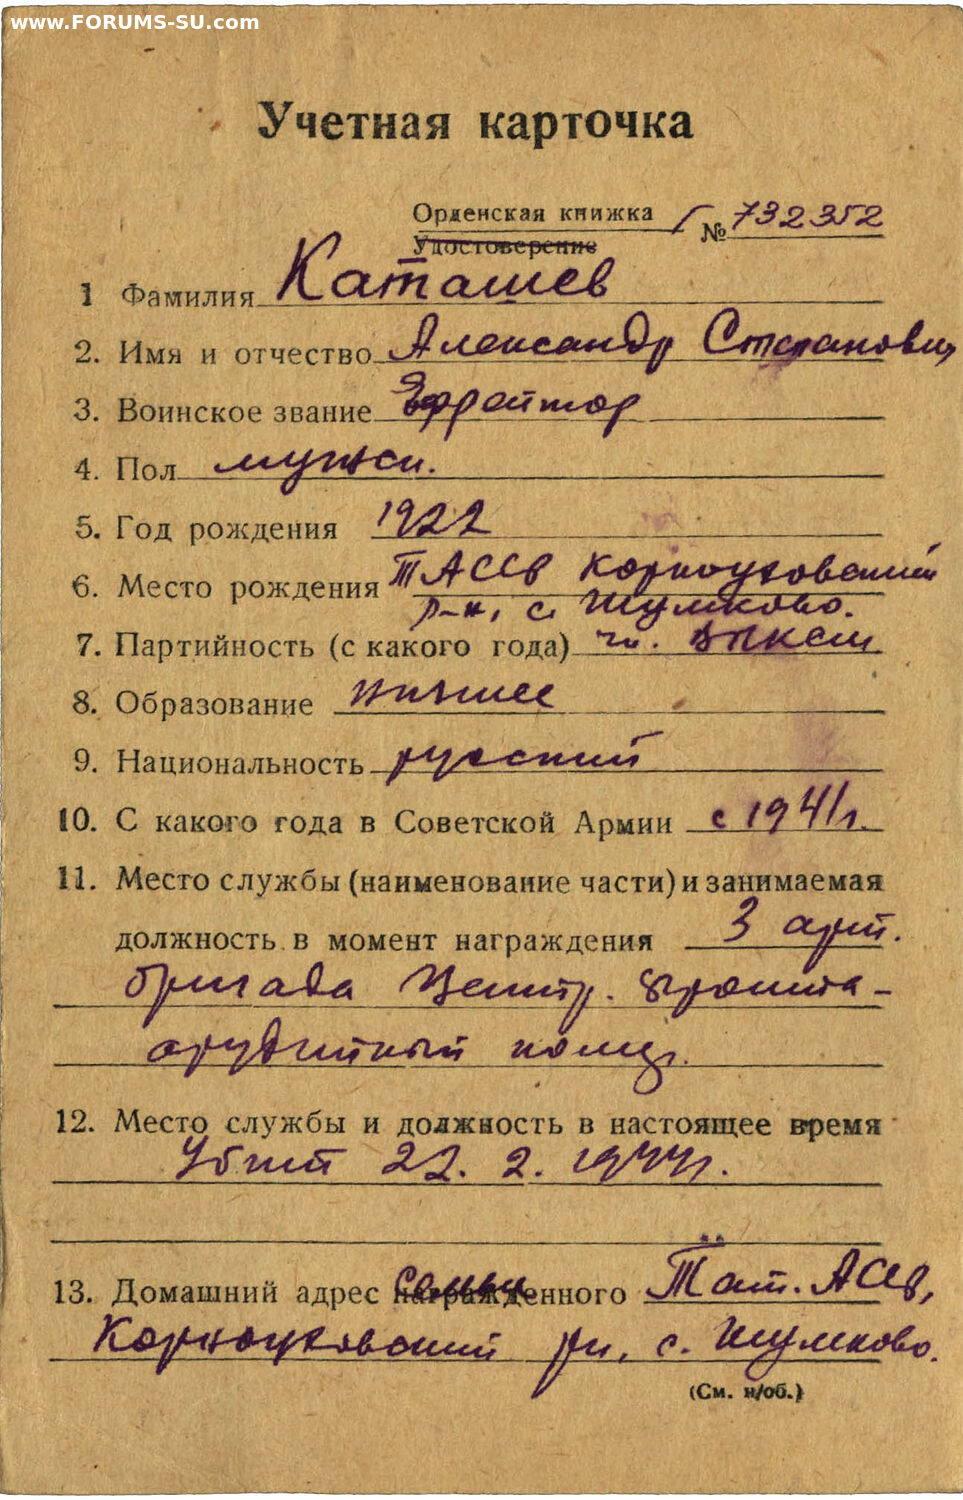 www.FORUMS-SU.com
Учетная карточка
Орденская книжка № 732352
Удостоверение
1 Фамилия Каташев
2. Имя и отчество Александр Степанович
3. Воинское звание Ефрейтор
4. Пол мужск.
5. Год рождения 1922
6. Место рождения ТАССР Корноуховский
р-н, с. Шумково.
7. Партийность (с какого года) чл. ВЛКСМ
8. Образование низшее
9. Национальность русский
10. С какого года в Советской Армии с 1941 г.
11. Место службы (наименование части) и занимаемая
должность в момент награждения 3 арт.
бригада Центр. фронта -
орудийный номер.
12. Место службы и должность в настоящее время
Убит 22. 2. 1944 г.
13. Домашний адрес семьи награжденного Тат. АССР,
Корноуховский рн, с. Шумково.
(См. н/об.)